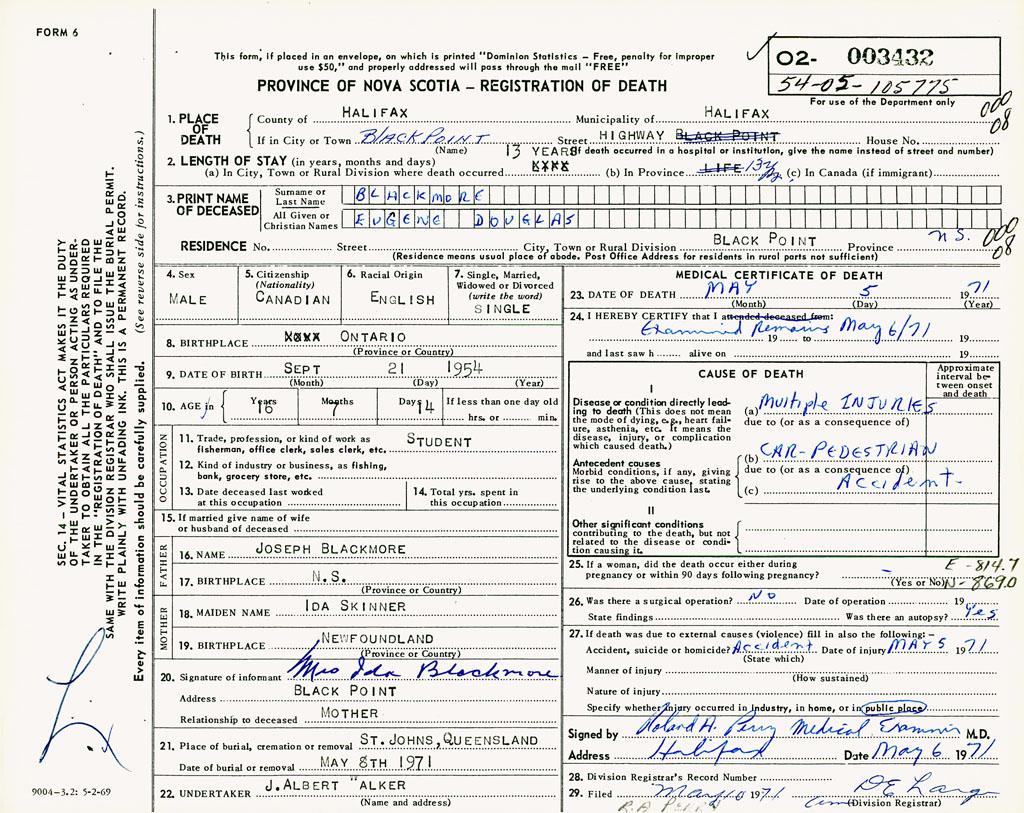 FORM 6
This form, if placed in an envelope, on which is printed "Dominion Statistics – Free, penalty for improper
use $50," and properly addressed will pass through the mail "FREE"
02- 003432
54-05-105775
For use of the Department only
PROVINCE OF NOVA SCOTIA – REGISTRATION OF DEATH
000
08
1. PLACE OF DEATH
County of HALIFAX Municipality of HALIFAX
If in City or Town BLACK POINT Street HIGHWAY BLACK POINT House No.
(Name) (If death occurred in a hospital or institution, give the name instead of street and number)
2. LENGTH OF STAY (in years, months and days) 13 YEARS
(a) In City, Town or Rural Division where death occurred XXXX (b) In Province LIFE 13 (c) In Canada (if immigrant)
3. PRINT NAME OF DECEASED
Surname or Last Name BLACKMORE
All Given or Christian Names EUGENE DOUGLAS
RESIDENCE No. Street City, Town or Rural Division BLACK POINT Province N.S.
000
08
(Residence means usual place of abode. Post Office Address for residents in rural parts not sufficient)
4. Sex
MALE
5. Citizenship
(Nationality)
CANADIAN
6. Racial Origin
ENGLISH
7. Single, Married,
Widowed or Divorced
(write the word)
SINGLE
8. BIRTHPLACE XXXX ONTARIO
(Province or Country)
9. DATE OF BIRTH SEPT 21 1954
(Month) (Day) (Year)
10. AGE in Years 16 Months 7 Days 14 If less than one day old
hrs. or min.
OCCUPATION
11. Trade, profession, or kind of work as STUDENT
fisherman, office clerk, sales clerk, etc.
12. Kind of industry or business, as fishing,
bank, grocery store, etc.
13. Date deceased last worked
at this occupation
14. Total yrs. spent in
this occupation
15. If married give name of wife
or husband of deceased
FATHER
16. NAME JOSEPH BLACKMORE
17. BIRTHPLACE N.S.
(Province or Country)
MOTHER
18. MAIDEN NAME IDA SKINNER
19. BIRTHPLACE NEWFOUNDLAND
(Province or Country)
20. Signature of informant Mrs Ida Blackmore
Address BLACK POINT
Relationship to deceased MOTHER
21. Place of burial, cremation or removal ST. JOHNS, QUEENSLAND
Date of burial or removal MAY 8TH 1971
22. UNDERTAKER J. ALBERT "ALKER
(Name and address)
MEDICAL CERTIFICATE OF DEATH
23. DATE OF DEATH MAY 5 1971
(Month) (Day) (Year)
24. I HEREBY CERTIFY that I attended deceased from:
Examined Remains May 6/71
19 to 19
and last saw h alive on 19
CAUSE OF DEATH
Approximate interval between onset and death
I
Disease or condition directly leading to death (This does not mean the mode of dying, e.g., heart failure, asthenia, etc. It means the disease, injury, or complication which caused death.)
(a) MULTIPLE INJURIES
due to (or as a consequence of)
Antecedent causes
Morbid conditions, if any, giving rise to the above cause, stating the underlying condition last.
(b) CAR-PEDESTRIAN
due to (or as a consequence of)
(c) Accident
II
Other significant conditions
contributing to the death, but not
related to the disease or condition causing it.
25. If a woman, did the death occur either during
pregnancy or within 90 days following pregnancy? –
(Yes or No)
E-814.7
N-869.0
26. Was there a surgical operation? No Date of operation 19
State findings Was there an autopsy? Yes
27. If death was due to external causes (violence) fill in also the following:–
Accident, suicide or homicide? Accident Date of injury MAY 5 1971
(State which)
Manner of injury
(How sustained)
Nature of injury
Specify whether injury occurred in industry, in home, or in public place
Signed by Roland A. Perry Medical Examiner M.D.
Address Halifax Date May 6 1971
28. Division Registrar's Record Number
29. Filed May 10 1971
(Division Registrar)
R.A. PERRY
SEC. 14 – VITAL STATISTICS ACT MAKES IT THE DUTY
OF THE UNDERTAKER OR PERSON ACTING AS UNDERTAKER
TO OBTAIN ALL THE PARTICULARS REQUIRED
IN THE "REGISTRATION OF DEATH" AND TO FILE THE
SAME WITH THE DIVISION REGISTRAR WHO SHALL ISSUE THE BURIAL PERMIT.
WRITE PLAINLY WITH UNFADING INK. THIS IS A PERMANENT RECORD.
Every item of information should be carefully supplied. (See reverse side for instructions.)
9004-3.2: 5-2-69